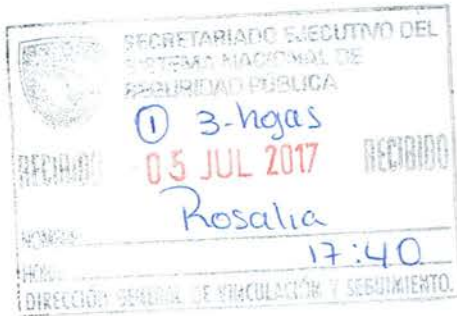 SECRETARIADO EJECUTIVO DEL
SISTEMA NACIONAL DE
SEGURIDAD PÚBLICA
① 3-hojas
RECIBIDO 05 JUL 2017 RECIBIDO
Rosalia
NOMBRE
17:40
HORA
DIRECCIÓN GENERAL DE VINCULACIÓN Y SEGUIMIENTO.